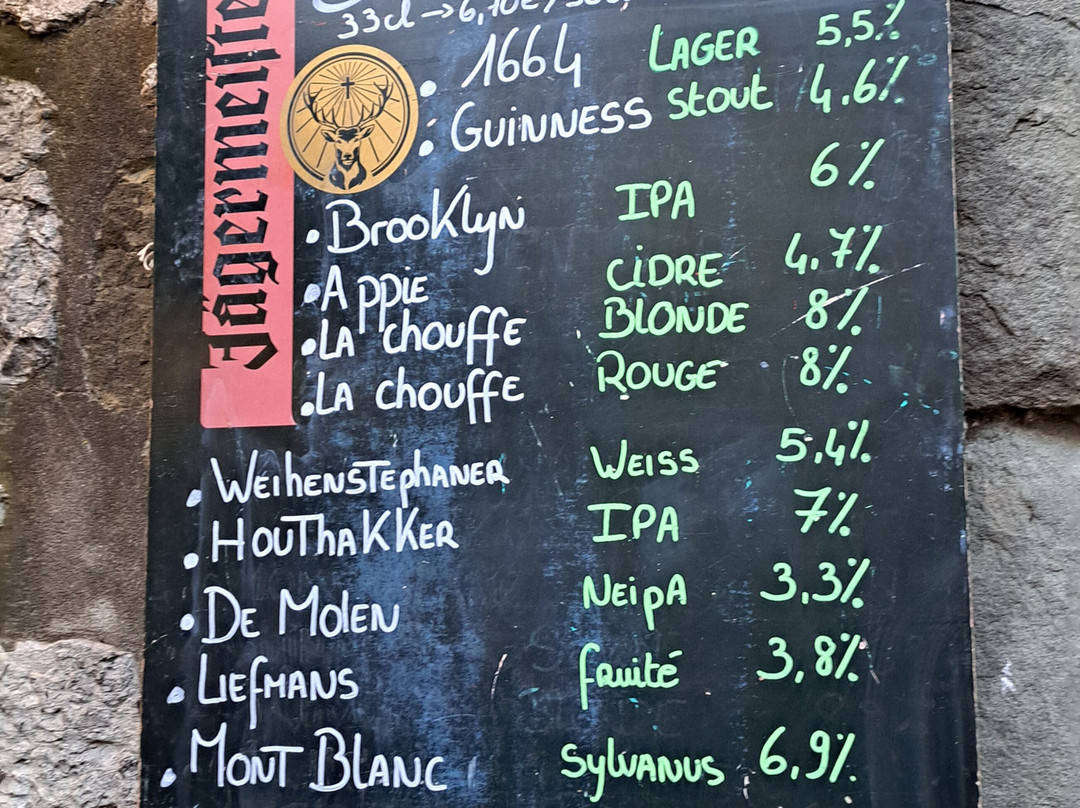 33cl → 6,70€
Jägermeiste
• 1664 LAGER 5,5%
• GUINNESS Stout 4.6%
• BrooKlyn IPA 6%
• Appie CiDRE 4,7%
• LA chouffE BLONDE 8%
• LA chouffE ROUGE 8%
• WEihENSTEphANER WEISS 5,4%
• HOUThaKKER IPA 7%
• DE MOLEN NEipA 3,3%
• LIEfMANS fruité 3,8%
• MONT BLANC SylVANUS 6,9%